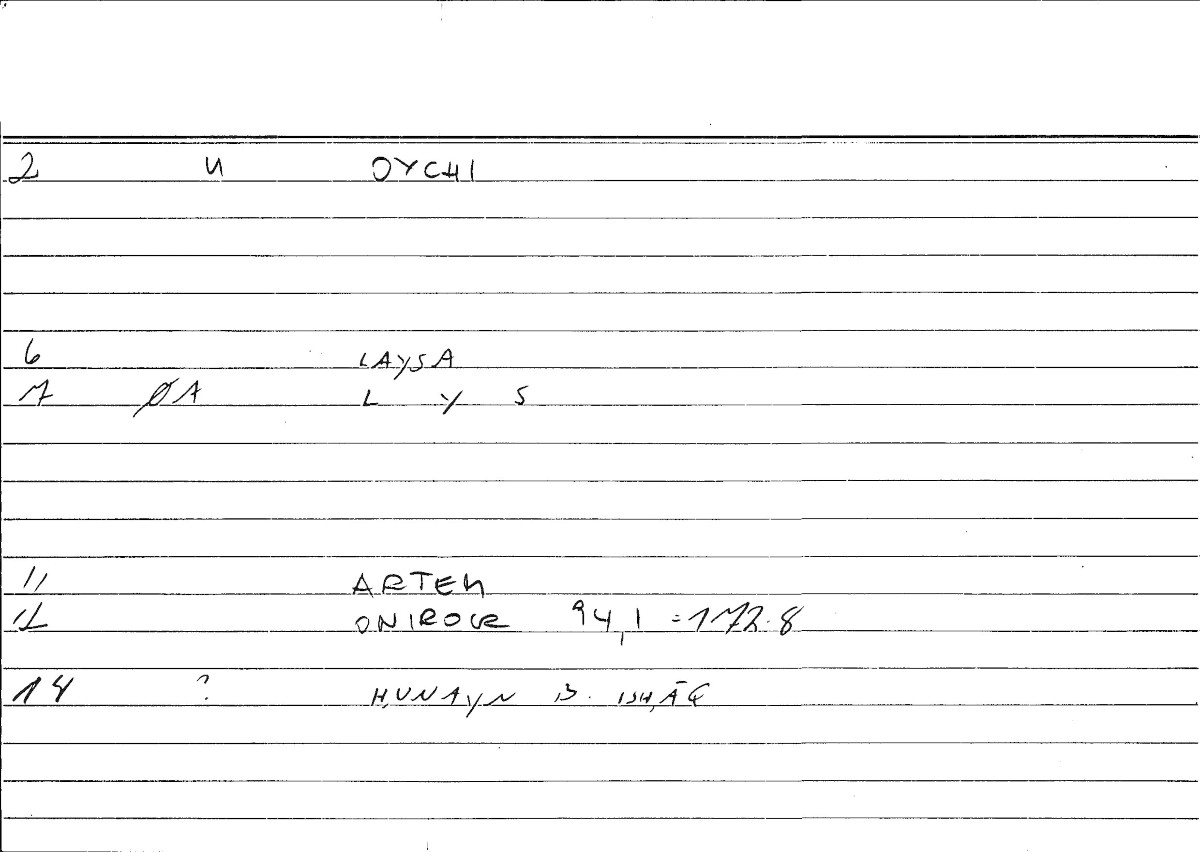 2 N OYCHI
6 LAYSA
7 ØA L Y S
11 ARTEM
12 ONIROCR 94,1 = 172.8
14 ? ḤUNAYN B. ISḤĀQ